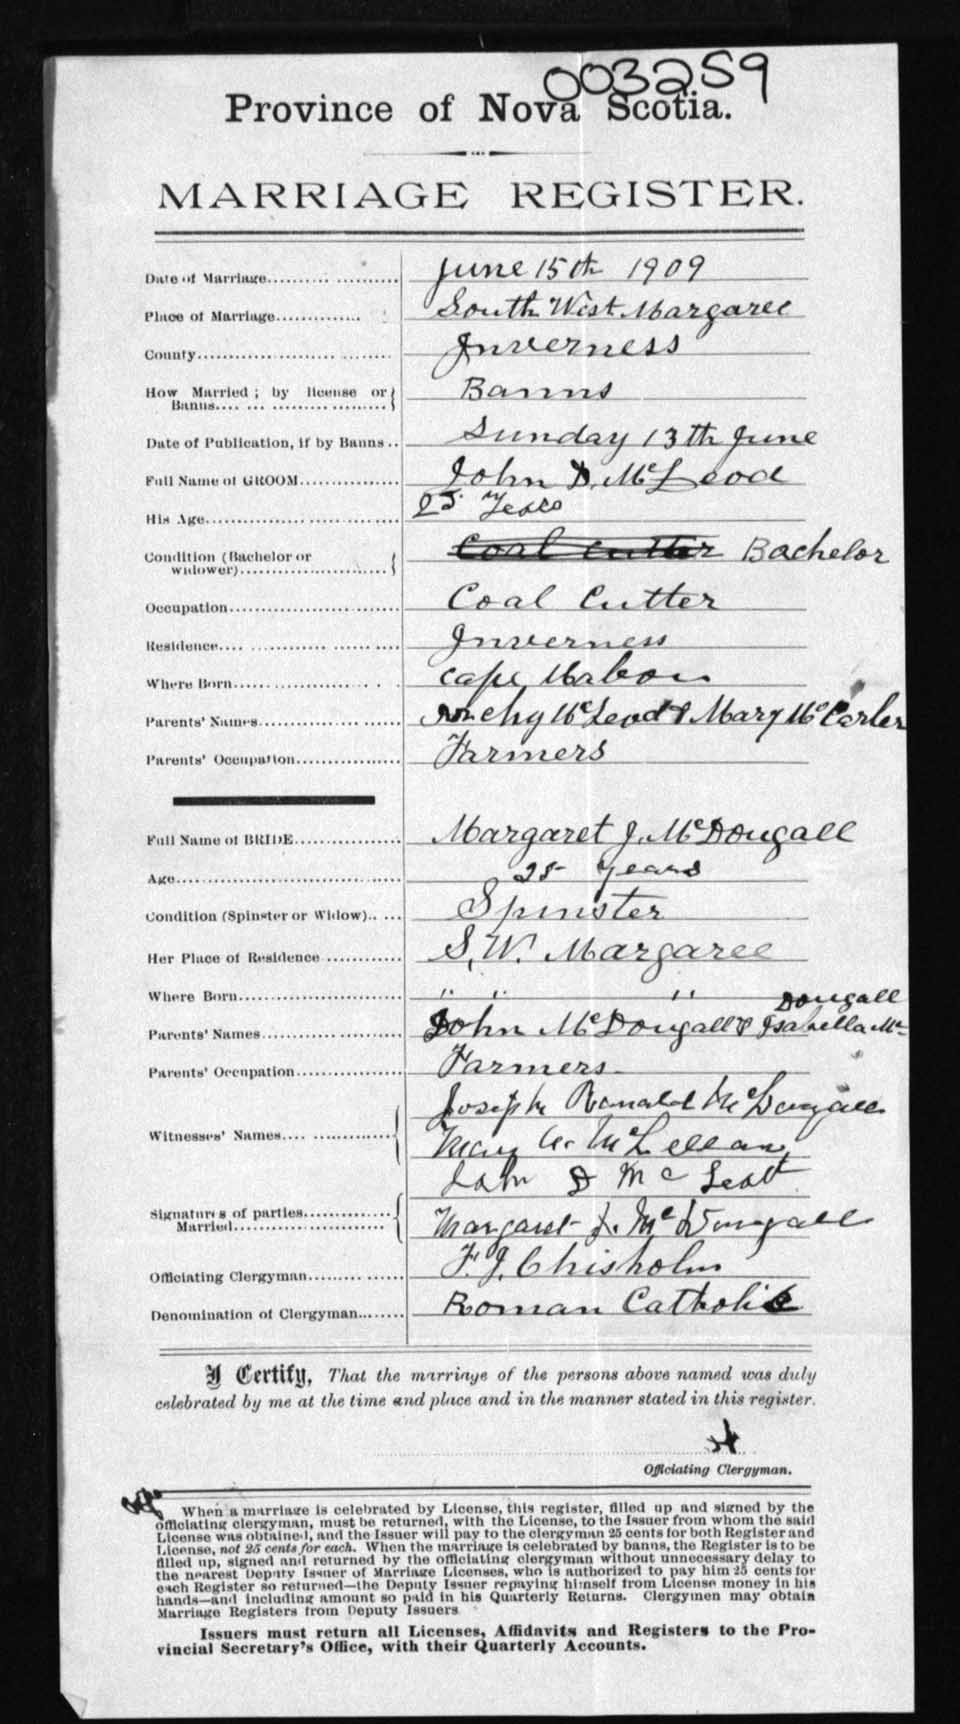 003259
Province of Nova Scotia.
MARRIAGE REGISTER.
Date of Marriage June 15th 1909
Place of Marriage South West Margaree
County Inverness
How Married; by license or
Banns Banns
Date of Publication, if by Banns Sunday 13th June
Full Name of GROOM John D. McLeod
His Age 25 Years
Condition (Bachelor or
widower) Coal Cutter Bachelor
Occupation Coal Cutter
Residence Inverness
Where Born Cape Mabou
Parents' Names McLeod & Mary Mc
Parents' Occupation Farmers
Full Name of BRIDE Margaret J. McDougall
Age 25 years
Condition (Spinster or Widow) Spinster
Her Place of Residence S. W. Margaree
Where Born " " "
Dougall
Parents' Names John McDougall & Isabella Mc
Parents' Occupation Farmers
Joseph Ronald McDougall
Witnesses' Names Mary McLellan
John D McLeod
Signatures of parties
Married Margaret J. McDougall
Officiating Clergyman F. J. Chisholm
Denomination of Clergyman Roman Catholic
I Certify, That the marriage of the persons above named was duly
celebrated by me at the time and place and in the manner stated in this register.
Officiating Clergyman.
When a marriage is celebrated by License, this register, filled up and signed by the
officiating clergyman, must be returned, with the License, to the Issuer from whom the said
License was obtained, and the Issuer will pay to the clergyman 25 cents for both Register and
License, not 25 cents for each. When the marriage is celebrated by banns, the Register is to be
filled up, signed and returned by the officiating clergyman without unnecessary delay to
the nearest Deputy Issuer of Marriage Licenses, who is authorized to pay him 25 cents for
each Register so returned—the Deputy Issuer repaying himself from License money in his
hands—and including amount so paid in his Quarterly Returns. Clergymen may obtain
Marriage Registers from Deputy Issuers
Issuers must return all Licenses, Affidavits and Registers to the Pro-
vincial Secretary's Office, with their Quarterly Accounts.